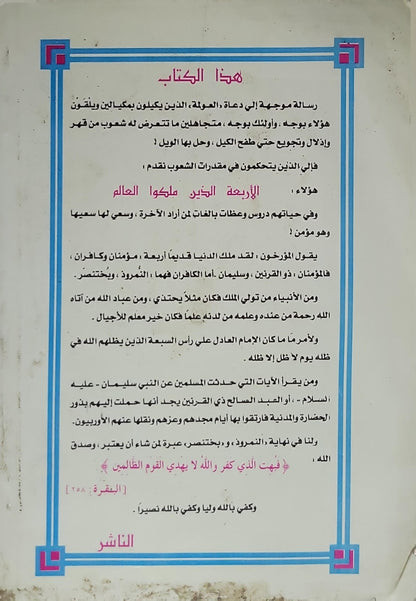 هذا الكتاب
رسالة موجهة إلي دعاة «العولمة» الذين يكيلون بمكيالين ويلقون
هؤلاء بوجه، وأولئك بوجه، متجاهلين ما تتعرض له شعوب من قهر
وإذلال وتجويع حتي طفح الكيل، وحل بها الويل!
فإلي الذين يتحكمون في مقدرات الشعوب نقدم:
هؤلاء: الأربعة الذين ملكوا العالم
وفي حياتهم دروس وعظات بالغات لمن أراد الآخرة، وسعي لها سعيها
وهو مؤمن!
يقول المؤرخون: لقد ملك الدنيا قديمًا أربعة: مؤمنان وكافران،
فالمؤمنان: ذو القرنين، وسليمان. أما الكافران فهما: النُّمروذ، وبُختنصر.
ومن الأنبياء من تولي الملك فكان مثلاً يحتذي، ومن عباد الله من آتاه
الله رحمة من عنده وعلمه من لدنه علمًا فكان خير معلم للأجيال.
ولأمر مَّا كان الإمام العادل علي رأس السبعة الذين يظلهم الله في
ظله يوم لا ظل إلا ظله.
ومن يقرأ الآيات التي حدثت المسلمين عن النبي سليمان - عليه
السلام -، أو العبد الصالح ذي القرنين يجد أنها حملت إليهم بذور
الحضارة والمدنية فارتقوا بها أيام مجدهم وعزهم ونقلها عنهم الأوربيون.
ولنا في نهاية «النمروذ» و«بختنصر» عبرة لمن شاء أن يعتبر، وصدق
الله: ﴿ فَبُهت الَّذي كفر واللَّه لا يهدي القوم الظَّالمين ﴾
[البقرة: ٢٥٨]
وكفي بالله وليا وكفي بالله نصيرًا.
الناشر